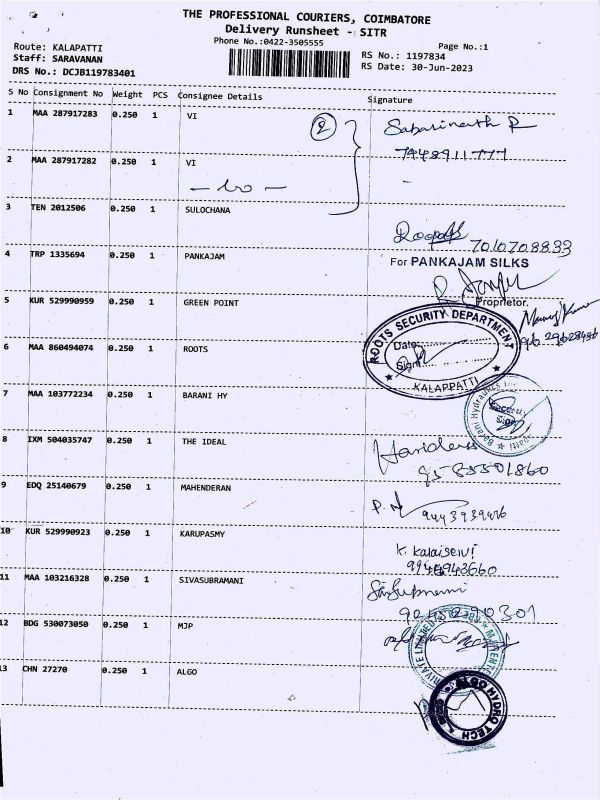 THE PROFESSIONAL COURIERS, COIMBATORE
Delivery Runsheet - SITR
Phone No.:0422-3505555
Page No.:1
Route: KALAPATTI
Staff: SARAVANAN
DRS No.: DCJB119783401
RS No.: 1197834
RS Date: 30-Jun-2023
S No Consignment No Weight PCS Consignee Details Signature
1 MAA 287917283 0.250 1 VI
2
Sabarinath R
7448911777
2 MAA 287917282 0.250 1 VI
3 TEN 2012506 0.250 1 SULOCHANA
7010708833
4 TRP 1335694 0.250 1 PANKAJAM
For PANKAJAM SILKS
Proprietor.
5 KUR 529990959 0.250 1 GREEN POINT
ROOTS SECURITY DEPARTMENT
Date
Sign
KALAPPATTI
6 MAA 860494074 0.250 1 ROOTS
7 MAA 103772234 0.250 1 BARANI HY
Barani Hydraulics
8 IXM 504035747 0.250 1 THE IDEAL
9 EDQ 25140679 0.250 1 MAHENDERAN
10 KUR 529990923 0.250 1 KARUPASMY
K. Kalaiselvi
11 MAA 103216328 0.250 1 SIVASUBRAMANI
12 BDG 530073050 0.250 1 MJP
PRIVATE LIMITED
13 CHN 27270 0.250 1 ALGO
ALGO HYDRO TECH